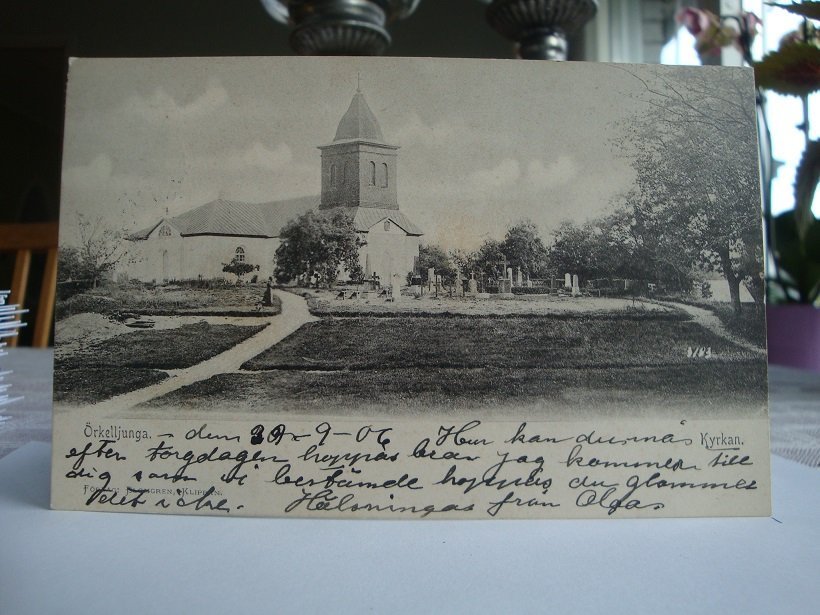 Örkelljunga. - den 29 - 9 - 06 Hur kan du må Kyrkan.
efter torgdagen hoppas bra jag kommer till
dig som vi bestämde hoppas du glömmer
Förlag: Blomgren, Klippan.
det icke. Hälsningar från Olga.